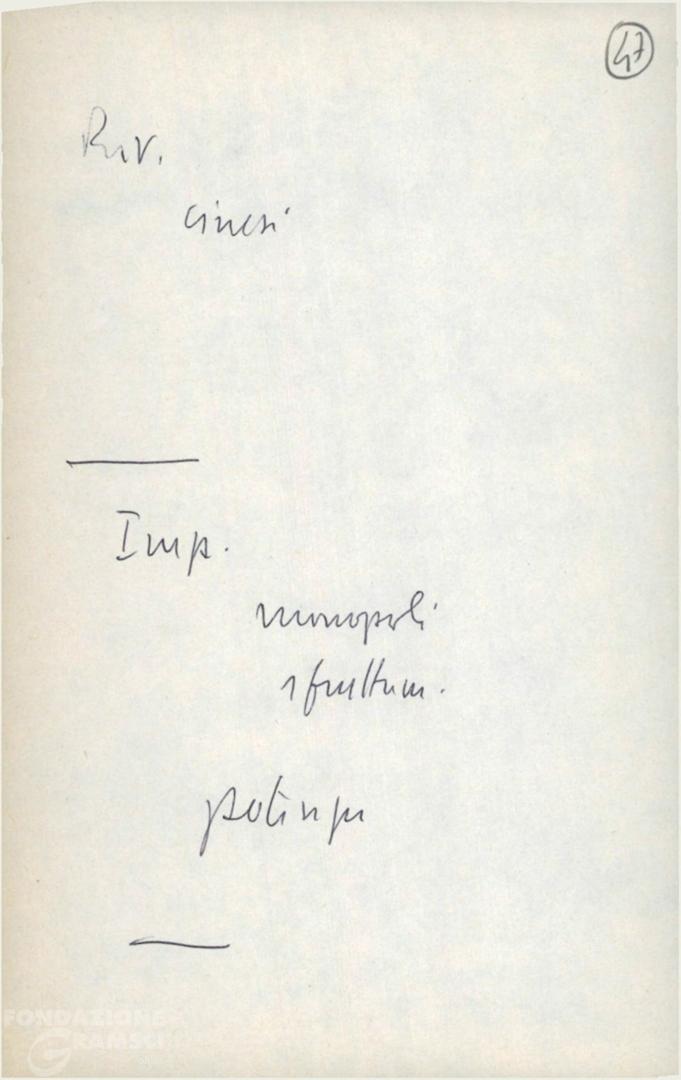 47
Riv.
cinesi
Imp.
monopoli
sfruttam.
FONDAZIONE
GRAMSCI